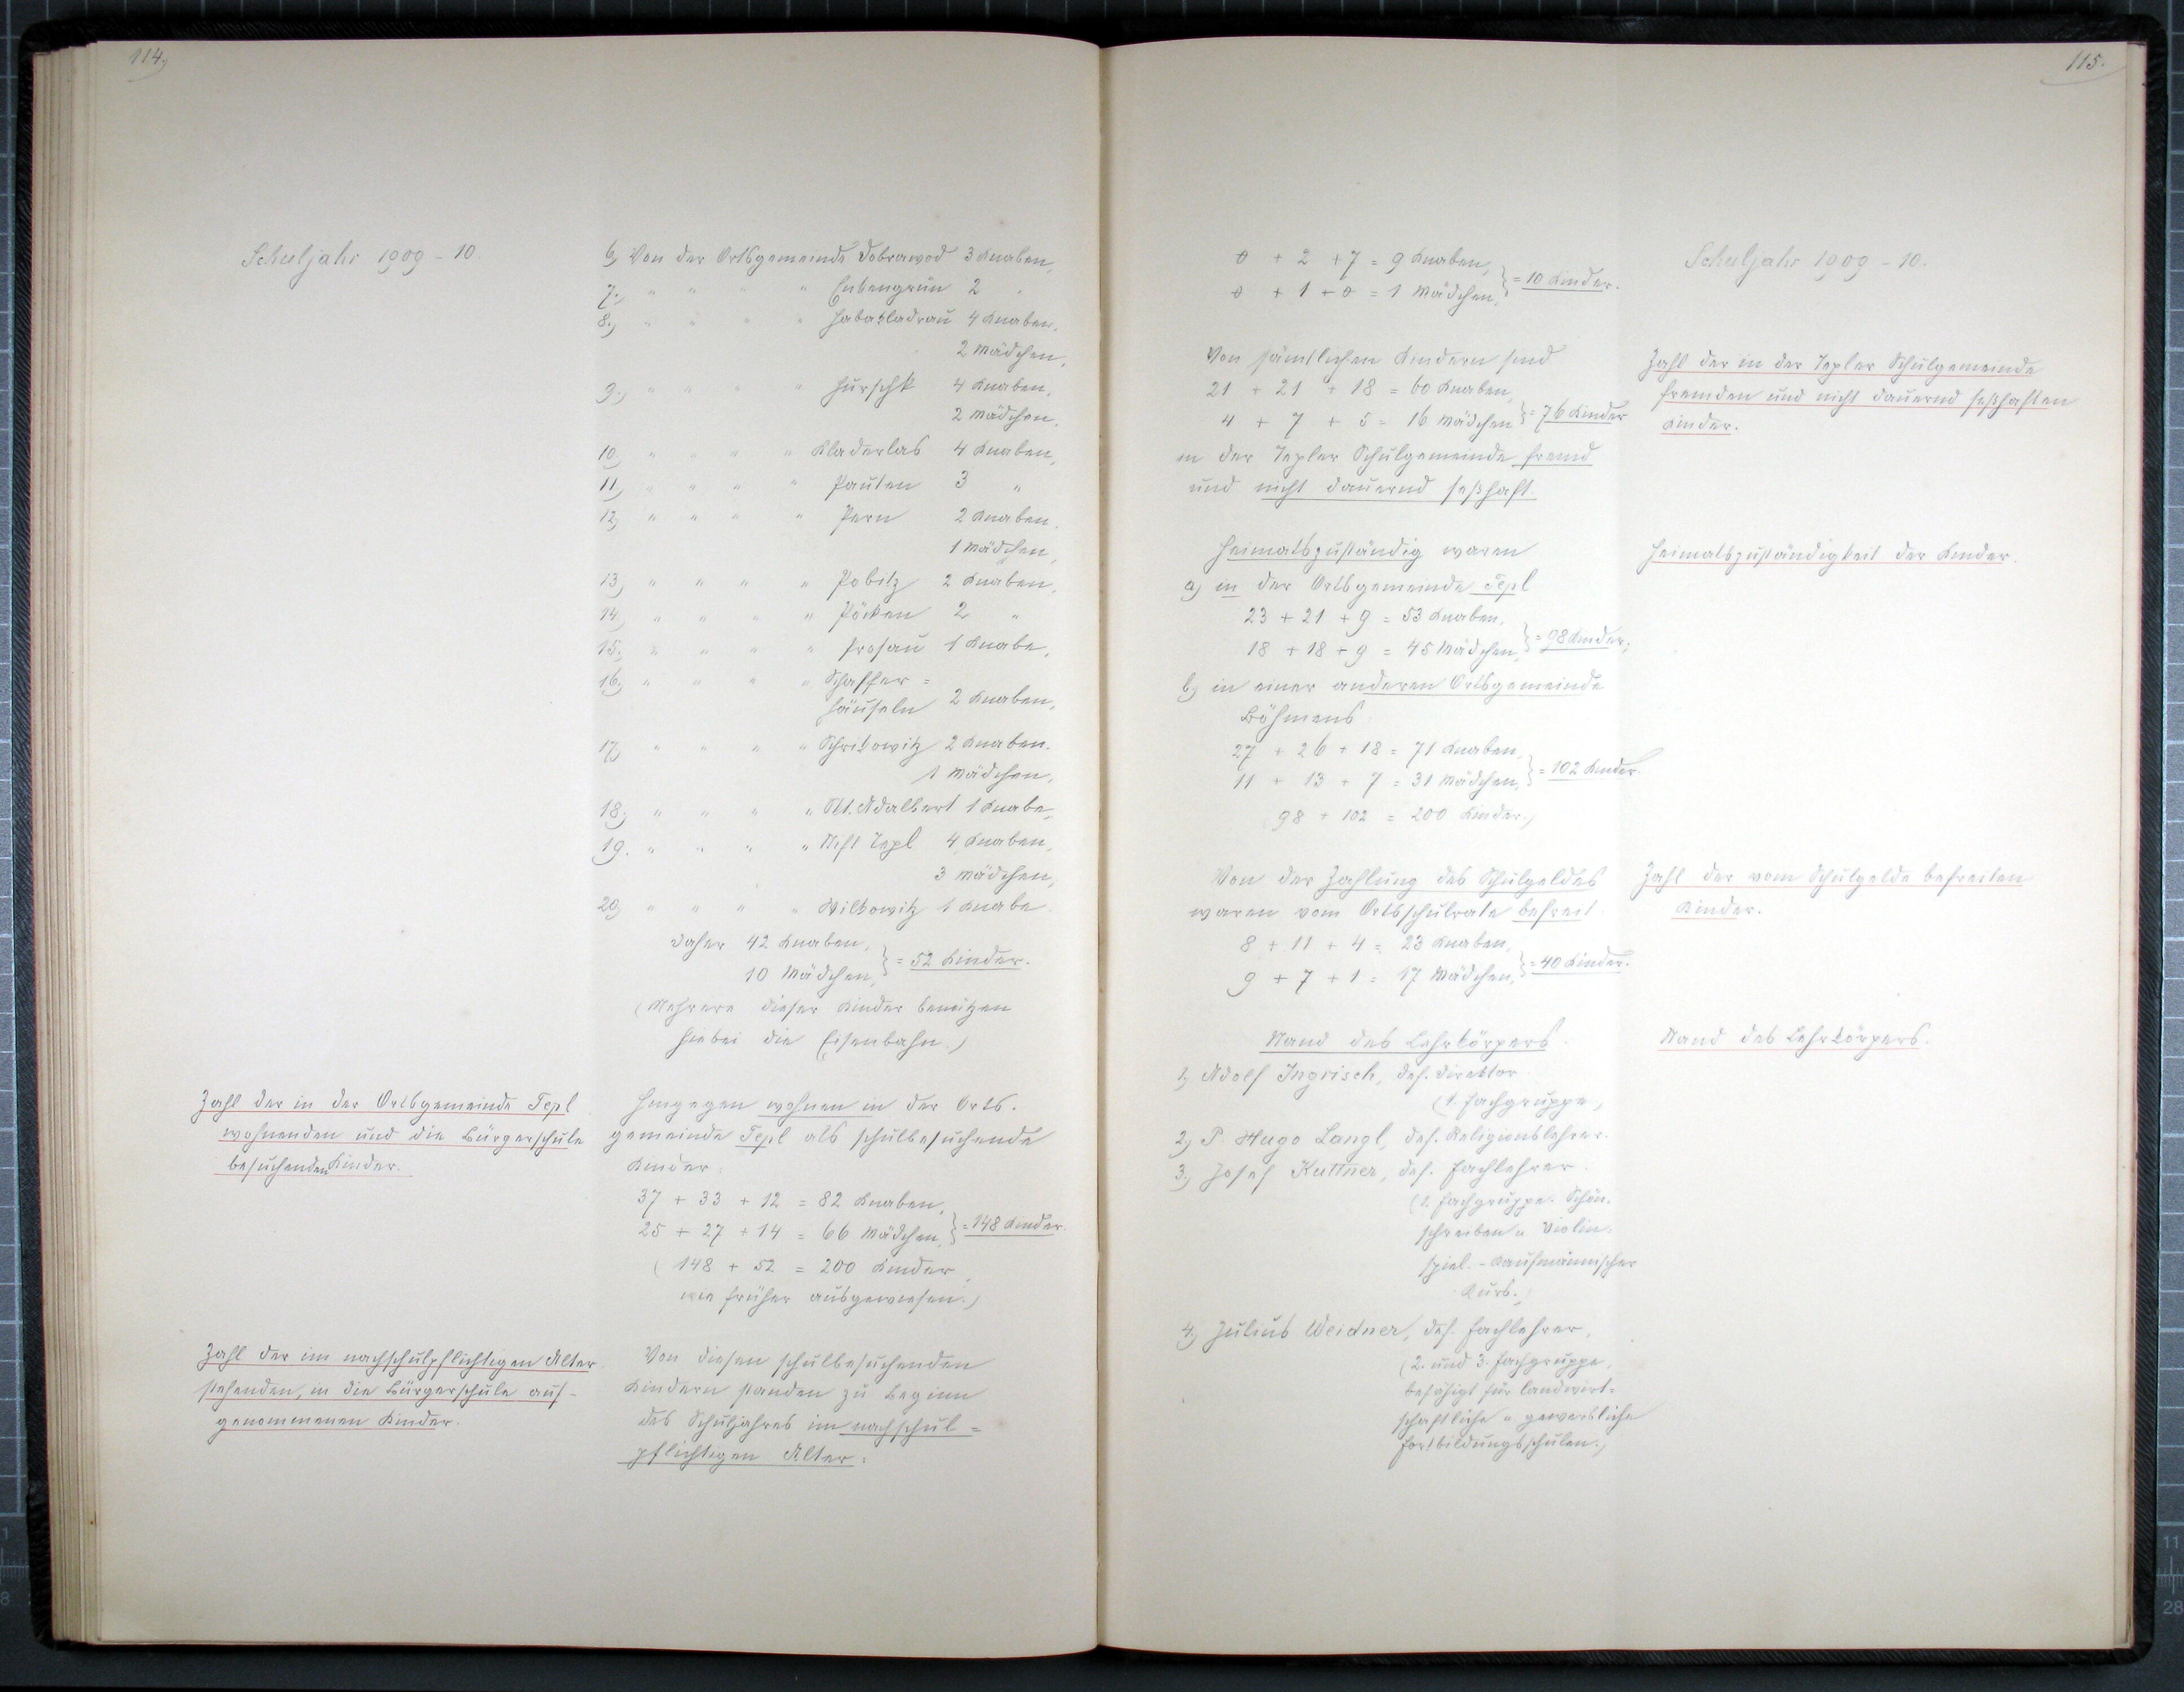 114,
Schuljahr 1909 - 10.
6, Von der Ortsgemeinde Dobrawod 3 Knaben,
7., " " " " Enkengrün 2 "
8., " " " " Habakladrau 4 Knaben,
2 Mädchen,
9., " " " " Hurschk 4 Knaben,
2 Mädchen,
10, " " " " Kladerlas 4 Knaben,
11, " " " " Pauten 3 "
12, " " " " Pern 2 Knaben,
1 Mädchen,
13, " " " " Pobitz 2 Knaben,
14, " " " " Pöcken 2 "
15, " " " " Prosau 1 Knabe,
16, " " " " Schaffer =
häuseln 2 Knaben,
17, " " " " Schrikowitz 2 Knaben.
1 Mädchen,
18, " " " " St. Adalbert 1 Knabe,
19. " " " " Stift Tepl 4 Knaben,
3 Mädchen,
20, " " " " Wilkowitz 1 Knabe
Daher 42 Knaben,
10 Mädchen, } = 52 Kinder.
(Mehrere dieser Kinder benützen
hiebei die Eisenbahn.)
Zahl der in der Ortsgemeinde Tepl
wohnenden und die Bürgerschule
besuchenden Kinder.
Hingegen wohnen in der Orts-
gemeinde Tepl als schulbesuchende
Kinder:
37 + 33 + 12 = 82 Knaben,
25 + 27 + 14 = 66 Mädchen, } = 148 Kinder.
( 148 + 52 = 200 Kinder,
wie früher ausgewiesen.)
Zahl der im nachschulpflichtigen Alter
stehenden, in die Bürgerschule auf-
genommenen Kinder.
Von diesen schulbesuchenden
Kindern standen zu Beginn
des Schuljahres im nachschul =
pflichtigen Alter:
115.
Schuljahr 1909 - 10.
0 + 2 + 7 = 9 Knaben,
0 + 1 + 0 = 1 Mädchen, } = 10 Kinder.
Von sämtlichen Kindern sind
21 + 21 + 18 = 60 Knaben,
4 + 7 + 5 = 16 Mädchen } = 76 Kinder
in der Tepler Schulgemeinde fremd
und nicht dauernd seßhaft.
Zahl der in der Tepler Schulgemeinde
fremden und nicht dauernd seßhaften
Kinder.
Heimatszuständig waren
a) in der Ortsgemeinde Tepl
23 + 21 + 9 = 53 Knaben,
18 + 18 + 9 = 45 Mädchen, } = 98 Kinder;
b) in einer anderen Ortsgemeinde
Böhmens
27 + 26 + 18 = 71 Knaben,
11 + 13 + 7 = 31 Mädchen, } = 102 Kinder.
(98 + 102 = 200 Kinder.)
Heimatszuständigkeit der Kinder.
Von der Zahlung des Schulgeldes
waren vom Ortsschulrate befreit
8 + 11 + 4 = 23 Knaben,
9 + 7 + 1 = 17 Mädchen, } = 40 Kinder.
Zahl der vom Schulgelde befreiten
Kinder.
Stand des Lehrkörpers.
Stand des Lehrkörpers.
1, Adolf Ingrisch, def. Direktor.
(1. Fachgruppe,)
2, P. Hugo Langl, def. Religionslehrer.
3., Josef Kuttner, def. Fachlehrer.
(1. Fachgruppe. Schön-
schreiben u. Violin-
spiel. - Kaufmännischer
Kurs.)
4., Julius Weidner, def. Fachlehrer,
(2. und 3. Fachgruppe,
befähigt für landwirt=
schaftliche u. gewerbliche
Fortbildungsschulen.)